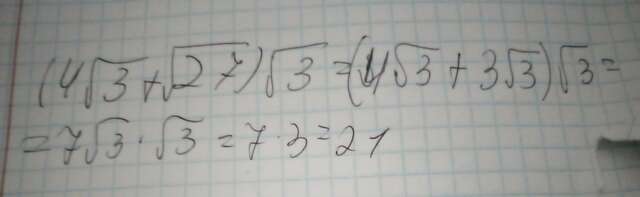 (4√3+√27)√3=(4√3+3√3)√3=
=7√3·√3=7·3=21